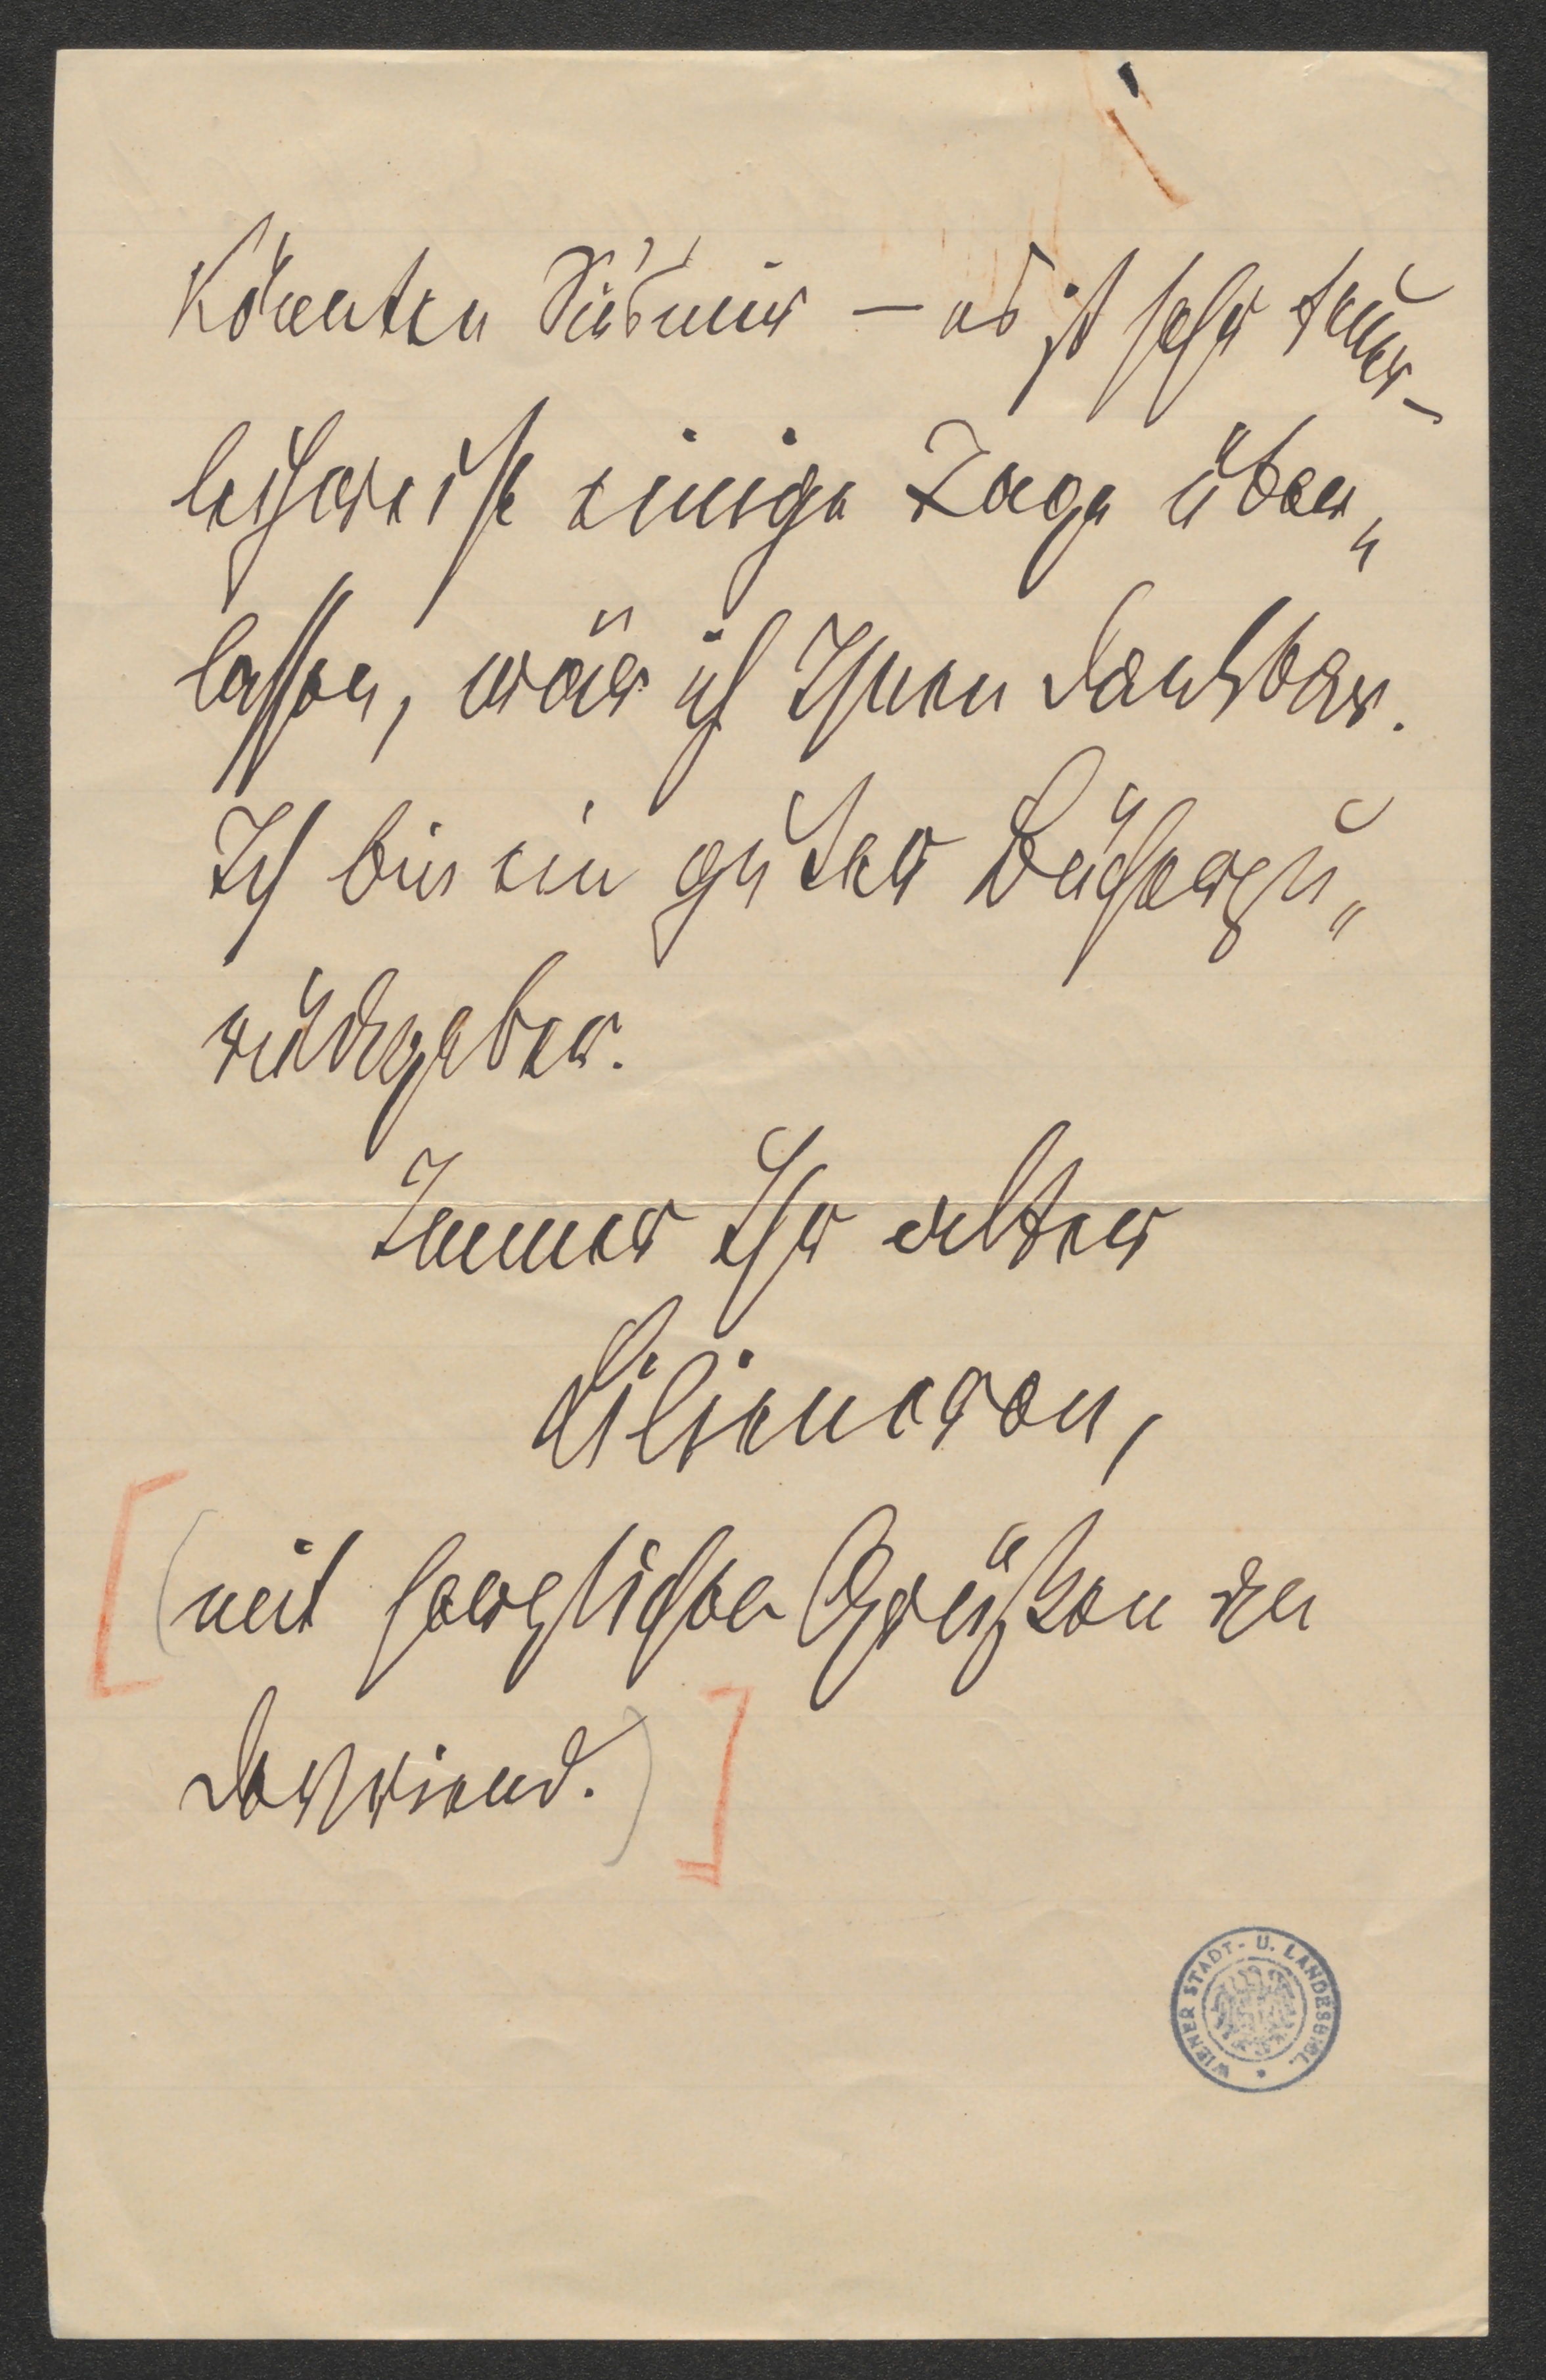 Könnten Sie's mir – es ist sehr teuer –
leihweise einige Tage über„
lassen, wär ich Ihnen dankbar.
Ich bin ein guter Bücherzu„
rückgeber.
Immer Ihr alter
Liliencron,
(mit herzlichen Grüßen an
Derschrieud.)
WIENER STADT- U. LANDESBIBL.